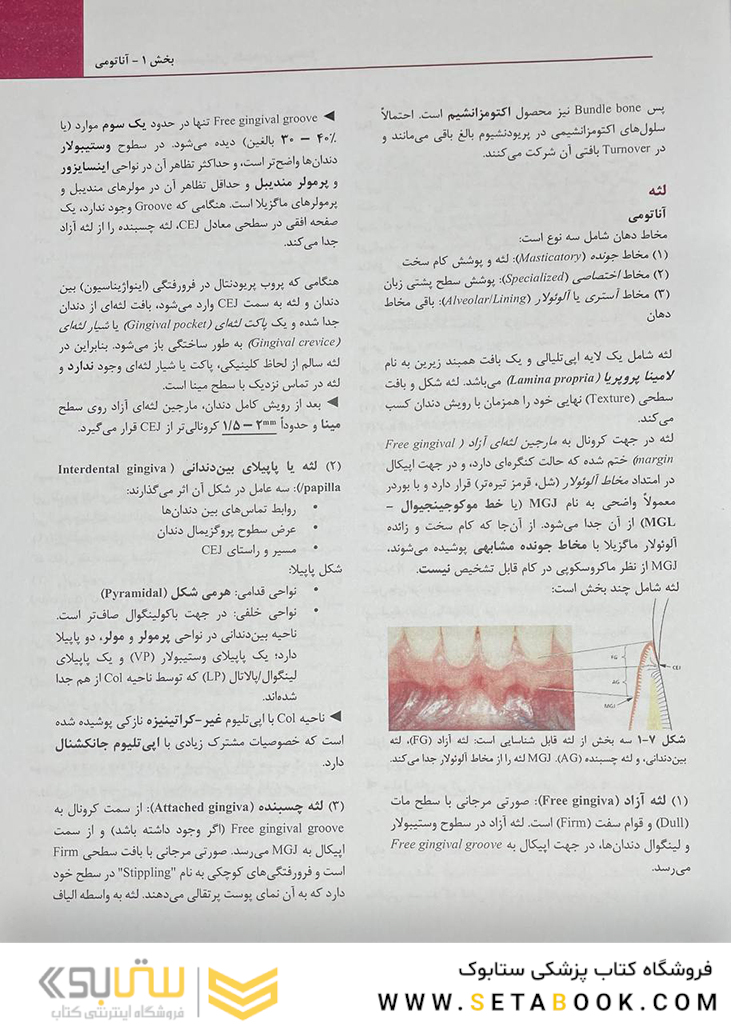 بخش ۱ - آناتومی
پس Bundle bone نیز محصول اکتومزانشیم است. احتمالاً
سلول‌های اکتومزانشیمی در پریودنشیوم بالغ باقی می‌مانند و
در Turnover بافتی آن شرکت می‌کنند.
لثه
آناتومی
مخاط دهان شامل سه نوع است:
(۱) مخاط جونده (Masticatory): لثه و پوشش کام سخت
(۲) مخاط اختصاصی (Specialized): پوشش سطح پشتی زبان
(۳) مخاط آستری یا آلوئولار (Alveolar/Lining): باقی مخاط
دهان
لثه شامل یک لایه اپی‌تلیالی و یک بافت همبند زیرین به نام
لامینا پروپریا (Lamina propria) می‌باشد. لثه شکل و بافت
سطحی (Texture) نهایی خود را همزمان با رویش دندان کسب
می‌کند.
لثه در جهت کرونال به مارجین لثه‌ای آزاد (Free gingival
margin) ختم شده که حالت کنگره‌ای دارد، و در جهت اپیکال
در امتداد مخاط آلوئولار (شل، قرمز تیره‌تر) قرار دارد و با بوردر
معمولاً واضحی به نام MGJ (یا خط موکوجینجیوال –
MGL) از آن جدا می‌شود. از آن‌جا که کام سخت و زائده
آلوئولار ماگزیلا با مخاط جونده مشابهی پوشیده می‌شوند،
MGJ از نظر ماکروسکوپی در کام قابل تشخیص نیست.
لثه شامل چند بخش است:
FG
CEJ
AG
MGJ
شکل ۷-۱ سه بخش از لثه قابل شناسایی است: لثه آزاد (FG)، لثه
بین‌دندانی، و لثه چسبنده (AG). MGJ لثه را از مخاط آلوئولار جدا می‌کند.
(۱) لثه آزاد (Free gingiva): صورتی مرجانی با سطح مات
(Dull) و قوام سفت (Firm) است. لثه آزاد در سطوح وستیبولار
و لینگوال دندان‌ها، در جهت اپیکال به Free gingival groove
می‌رسد.
◄ Free gingival groove تنها در حدود یک سوم موارد (یا
۳۰ – ۴۰٪ بالغین) دیده می‌شود. در سطوح وستیبولار
دندان‌ها واضح‌تر است، و حداکثر تظاهر آن در نواحی اینسایزور
و پرمولر مندیبل و حداقل تظاهر آن در مولرهای مندیبل و
پرمولرهای ماگزیلا است. هنگامی که Groove وجود ندارد، یک
صفحه افقی در سطحی معادل CEJ، لثه چسبنده را از لثه آزاد
جدا می‌کند.
هنگامی که پروب پریودنتال در فرورفتگی (اینواژیناسیون) بین
دندان و لثه به سمت CEJ وارد می‌شود، بافت لثه‌ای از دندان
جدا شده و یک پاکت لثه‌ای (Gingival pocket) یا شیار لثه‌ای
(Gingival crevice) به طور ساختگی باز می‌شود. بنابراین در
لثه سالم از لحاظ کلینیکی، پاکت یا شیار لثه‌ای وجود ندارد و
لثه در تماس نزدیک با سطح مینا است.
◄ بعد از رویش کامل دندان، مارجین لثه‌ای آزاد روی سطح
مینا و حدوداً ۱/۵ – ۲mm کرونالی‌تر از CEJ قرار می‌گیرد.
(۲) لثه یا پاپیلای بین‌دندانی (Interdental gingiva
/papilla): سه عامل در شکل آن اثر می‌گذارند:
• روابط تماس‌های بین دندان‌ها
• عرض سطوح پروگزیمال دندان
• مسیر و راستای CEJ
شکل پاپیلا:
• نواحی قدامی: هرمی شکل (Pyramidal)
• نواحی خلفی: در جهت باکولینگوال صاف‌تر است.
ناحیه بین‌دندانی در نواحی پرمولر و مولر، دو پاپیلا
دارد؛ یک پاپیلای وستیبولار (VP) و یک پاپیلای
لینگوال/پالاتال (LP) که توسط ناحیه Col از هم جدا
شده‌اند.
◄ ناحیه Col با اپی‌تلیوم غیر-کراتینیزه نازکی پوشیده شده
است که خصوصیات مشترک زیادی با اپی‌تلیوم جانکشنال
دارد.
(۳) لثه چسبنده (Attached gingiva): از سمت کرونال به
Free gingival groove (اگر وجود داشته باشد) و از سمت
اپیکال به MGJ می‌رسد. صورتی مرجانی با بافت سطحی Firm
است و فرورفتگی‌های کوچکی به نام "Stippling" در سطح خود
دارد که به آن نمای پوست پرتقالی می‌دهند. لثه به واسطه الیاف
فروشگاه کتاب پزشکی ستابوک
WWW.SETABOOK.COM
ستابوک
فروشگاه اینترنتی کتاب